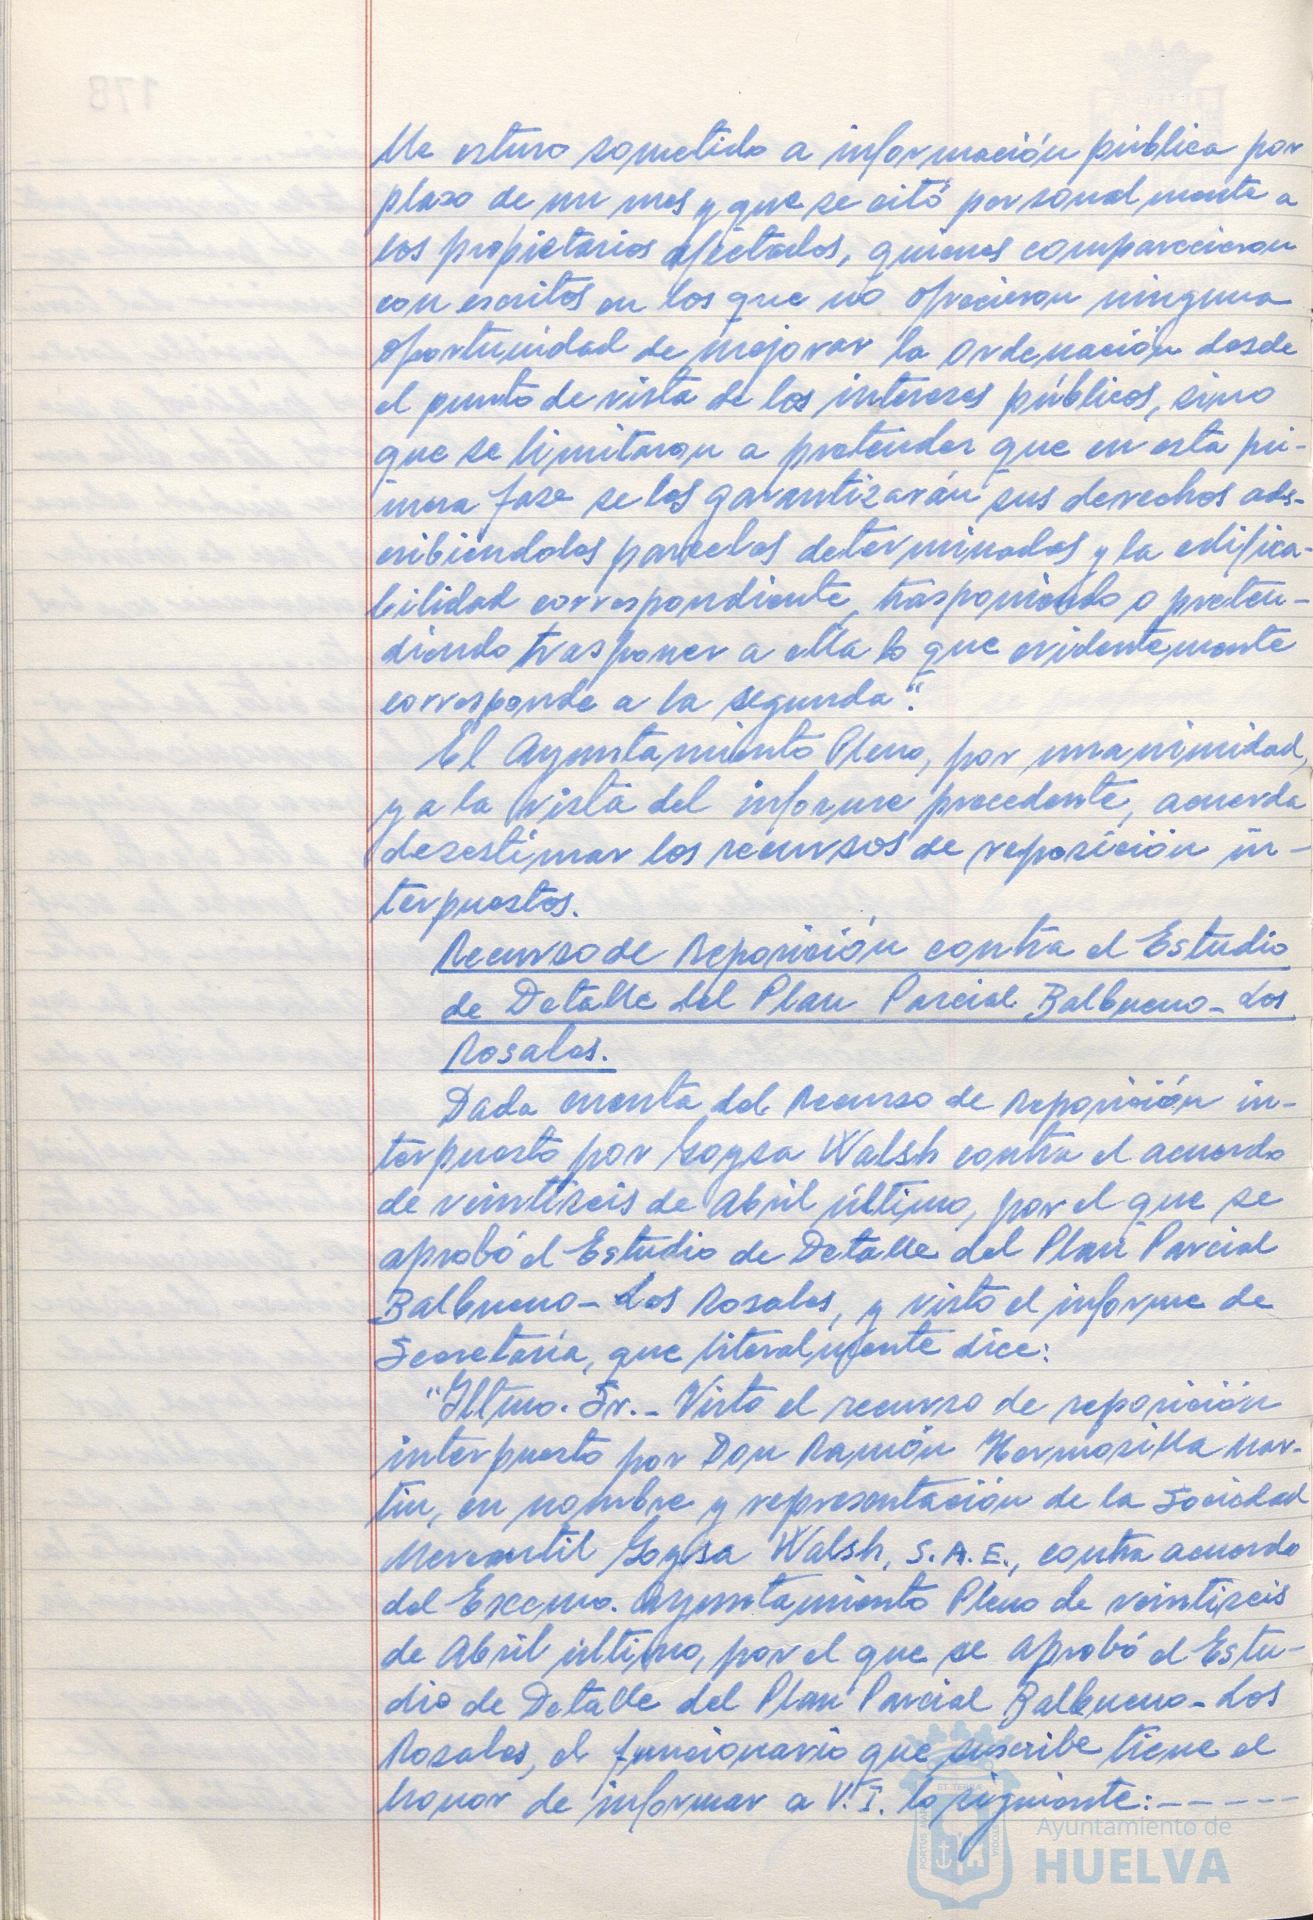 lle estuvo sometido a información pública por
plazo de un mes y que se citó personalmente a
los propietarios afectados, quienes comparecieron
con escritos en los que no ofrecieron ninguna
oportunidad de mejorar la ordenación desde
el punto de vista de los intereses públicos, sino
que se limitaron a pretender que en esta pri-
mera fase se les garantizarán sus derechos ads-
cribiéndoles parcelas determinadas y la edifica-
bilidad correspondiente, trasponiendo o preten-
diendo trasponer a ella lo que evidentemente
corresponde a la segunda".
El Ayuntamiento Pleno, por unanimidad,
y a la vista del informe precedente, acuerda
desestimar los recursos de reposición in-
terpuestos.
Recurso de Reposición contra el Estudio
de Detalle del Plan Parcial Balbueno-Los
Rosales.
Dada cuenta del Recurso de Reposición in-
terpuesto por Goysa Walsh contra el acuerdo
de veintiseis de Abril último, por el que se
aprobó el Estudio de Detalle del Plan Parcial
Balbueno-Los Rosales, y visto el informe de
Secretaría, que literalmente dice:
"Iltmo. Sr.- Visto el recurso de reposición
interpuesto por Don Ramón Hermosilla Mar-
tín, en nombre y representación de la Sociedad
Mercantil Goysa Walsh, S.A.E., contra acuerdo
del Excmo. Ayuntamiento Pleno de veintiseis
de Abril último, por el que se aprobó el Estu-
dio de Detalle del Plan Parcial Balbueno-Los
Rosales, el funcionario que suscribe tiene el
honor de informar a V.I. lo siguiente:-----
Ayuntamiento de
HUELVA